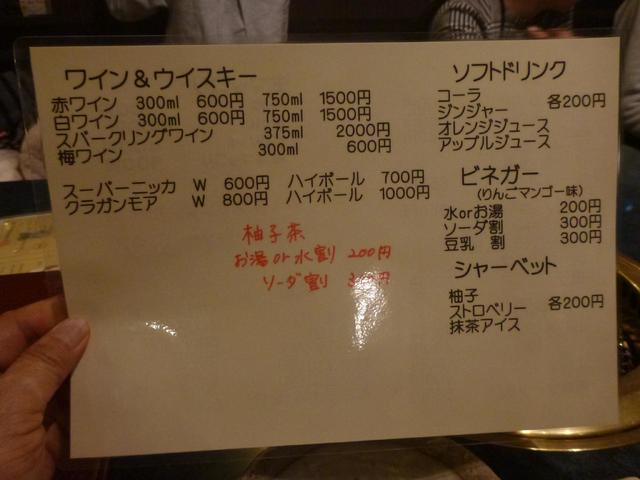 ワイン＆ウイスキー
赤ワイン 300ml 600円 750ml 1500円
白ワイン 300ml 600円 750ml 1500円
スパークリングワイン 375ml 2000円
梅ワイン 300ml 600円
スーパーニッカ W 600円 ハイボール 700円
クラガンモア W 800円 ハイボール 1000円
柚子茶
お湯or水割 200円
ソーダ割 300円
ソフトドリンク
コーラ
ジンジャー 各200円
オレンジジュース
アップルジュース
ビネガー
(りんごマンゴー味)
水orお湯 200円
ソーダ割 300円
豆乳 割 300円
シャーベット
柚子
ストロベリー 各200円
抹茶アイス